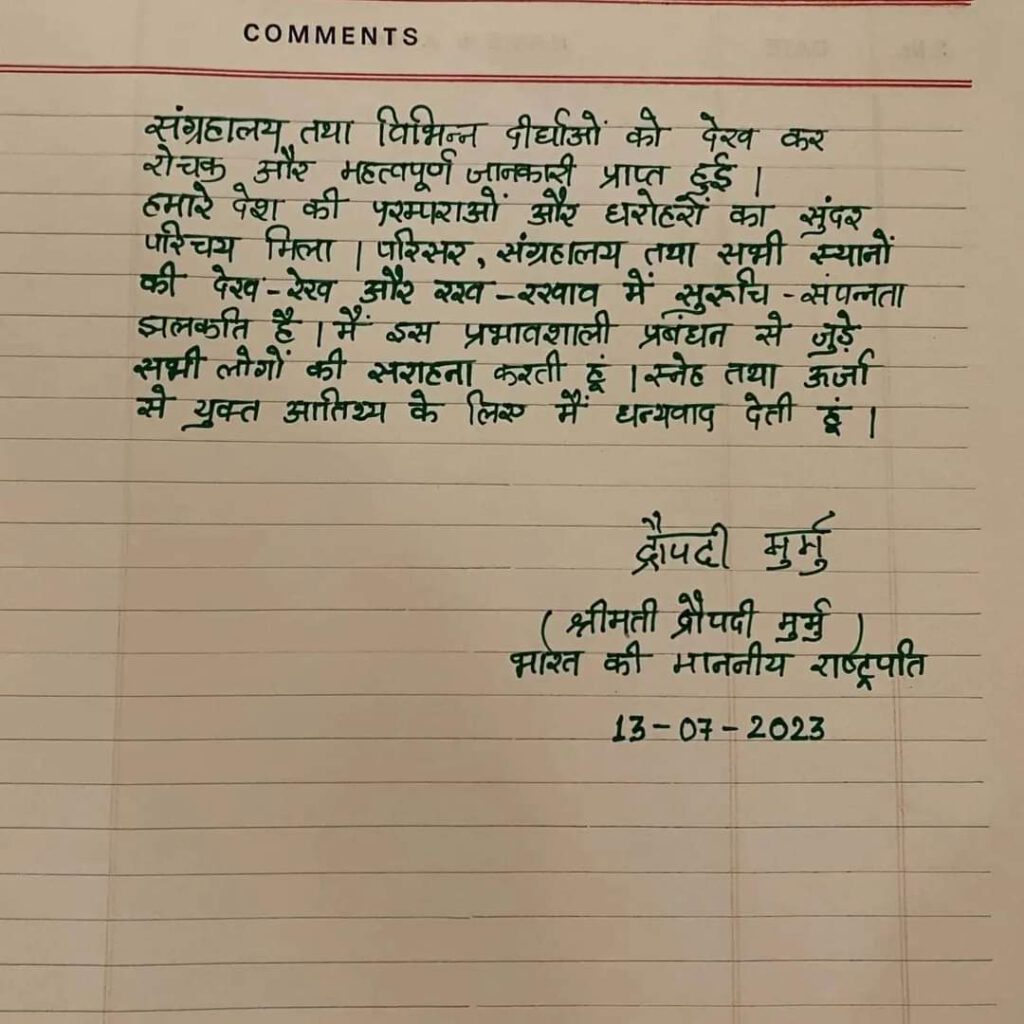 COMMENTS
संग्रहालय तथा विभिन्न दीर्घाओं को देख कर
रोचक और महत्वपूर्ण जानकारी प्राप्त हुई |
हमारे देश की परम्पराओं और धरोहरों का सुंदर
परिचय मिला | परिसर, संग्रहालय तथा सभी स्थानों
की देख-रेख और रख-रखाव में सुरूचि-संपन्नता
झलकति है | मैं इस प्रभावशाली प्रबंधन से जुड़े
सभी लोगों की सराहना करती हूं | स्नेह तथा ऊर्जा
से युक्त आतिथ्य के लिए मैं धन्यवाद देती हूं |
द्रौपदी मुर्मु
( श्रीमती द्रौपदी मुर्मु )
भारत की माननीय राष्ट्रपति
13-07-2023